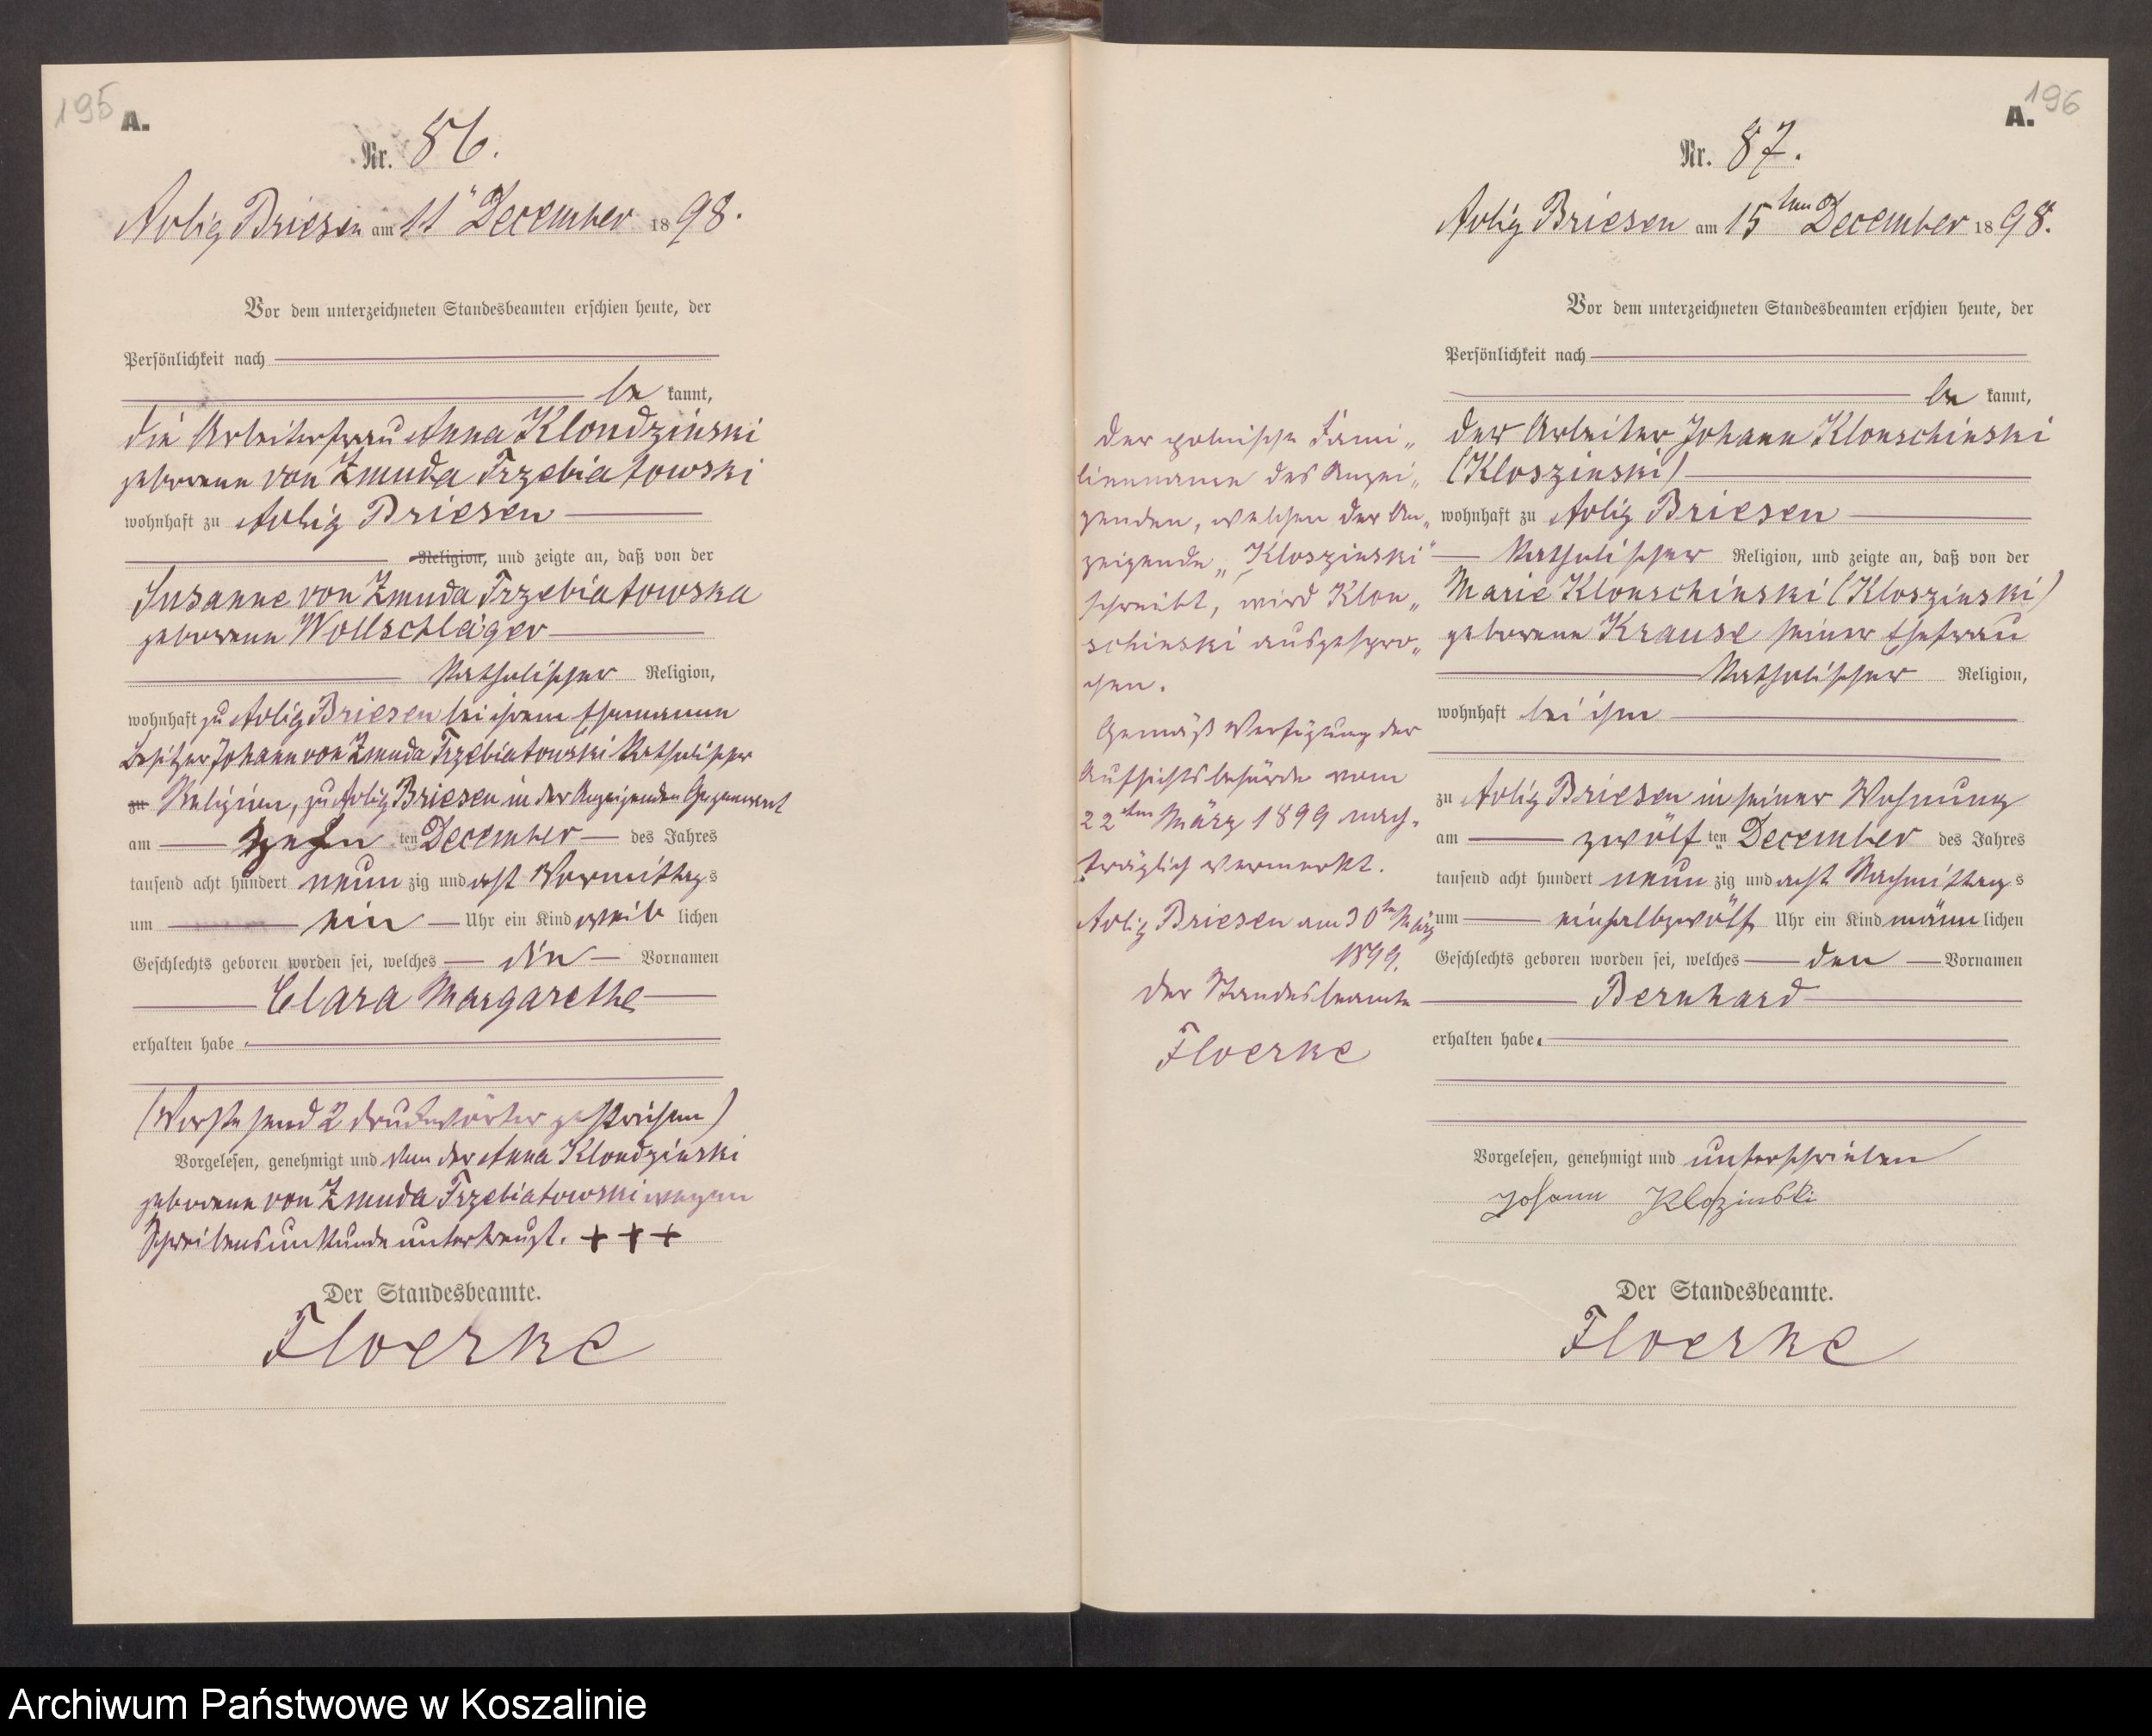 195
A.
Nr. 86.
Adlig Briesen am 11" December 1898.
Vor dem unterzeichneten Standesbeamten erschien heute, der
Persönlichkeit nach
be kannt,
die Arbeiterfrau Anna Klondzinski
geborene von Zmuda Trzebiatowski
wohnhaft zu Adlig Briesen
Religion, und zeigte an, daß von der
Susanne von Zmuda Trzebiatowska
geborenen Wollschläger
Katholischer Religion,
wohnhaft zu Adlig Briesen bei ihrem Ehemanne
Besitzer Johann von Zmuda Trzebiatowski Katholischer
zu Religion, zu Adlig Briesen in der Anzeigenden Gegenwart
am zehn ten December des Jahres
tausend acht hundert neun zig und acht Vormittags
um ein Uhr ein Kind weib lichen
Geschlechts geboren worden sei, welches die Vornamen
Clara Margarethe
erhalten habe.
(Vorstehend 2 Druckwörter gestrichen)
Vorgelesen, genehmigt und von der Anna Klondzinski
geborene von Zmuda Trzebiatowski wegen
Schreibensunkunde unterkreuzt. + + +
Der Standesbeamte.
Floerke
196
A.
Nr. 87.
Adlig Briesen am 15ten December 1898.
Vor dem unterzeichneten Standesbeamten erschien heute, der
Persönlichkeit nach
be kannt,
der Arbeiter Johann Klonschinski
(Kloszinski)
wohnhaft zu Adlig Briesen
Katholischer Religion, und zeigte an, daß von der
Marie Klonschinski (Kloszinski)
geborenen Krause seiner Ehefrau
Katholischer Religion,
wohnhaft bei ihm
zu Adlig Briesen in seiner Wohnung
am zwölf ten December des Jahres
tausend acht hundert neun zig und acht Nachmittags
um einhalbzwölf Uhr ein Kind männ lichen
Geschlechts geboren worden sei, welches den Vornamen
Bernhard
erhalten habe.
Vorgelesen, genehmigt und unterschrieben
Johann Kloszinski
Der Standesbeamte.
Floerke
Der polnische Fami„
lienname des Anzei„
genden, welchen der An„
zeigende „Kloszinski"
schreibt, wird Klon„
schinski ausgespro„
chen.
Gemäß Verfügung der
Aufsichtsbehörde vom
22ten März 1899 nach-
träglich vermerkt.
Adlig Briesen am 30ten März
1899.
Der Standesbeamte
Floerke
Archiwum Państwowe w Koszalinie